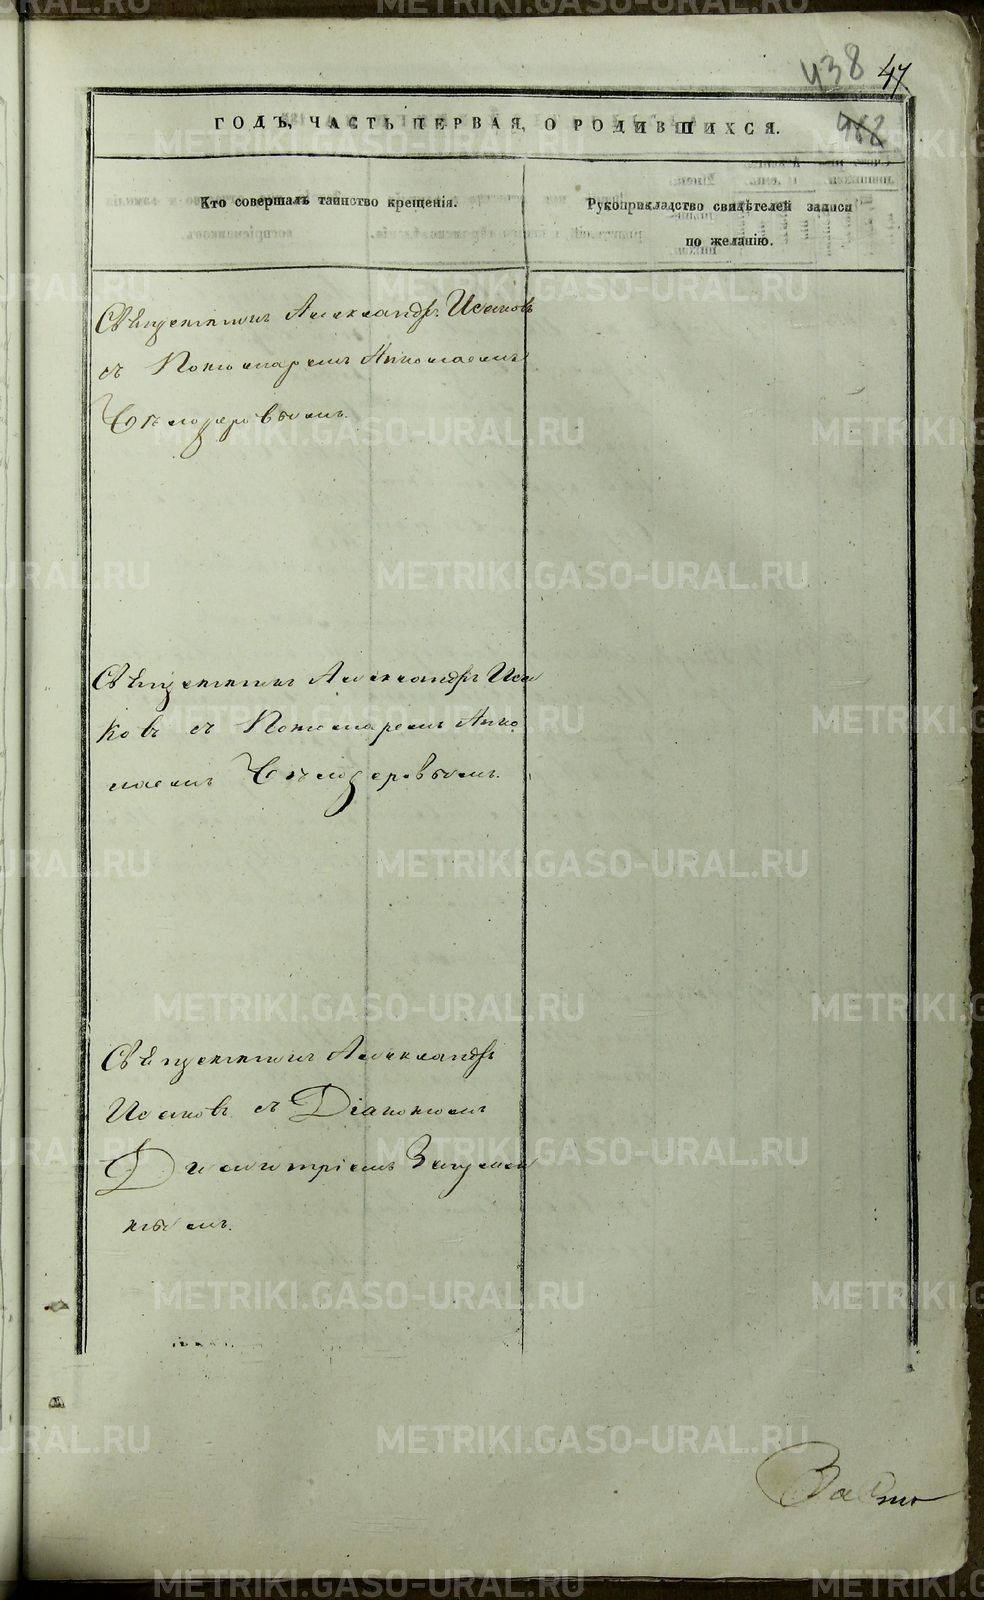 438 47
468
ГОДЪ, ЧАСТЬ ПЕРВАЯ, О РОДИВШИХСЯ.
Кто совершалъ таинство крещенія.
Рукоприкладство свидѣтелей записи
по желанію.
Священникъ Александръ Исаковъ
съ Пономаремъ Николаемъ
Священникъ Александръ Иса
ковъ съ Пономаремъ Нико
лаемъ
Священникъ Александръ
Исаковъ съ Діакономъ
Димитріемъ
METRIKI.GASO-URAL.RU